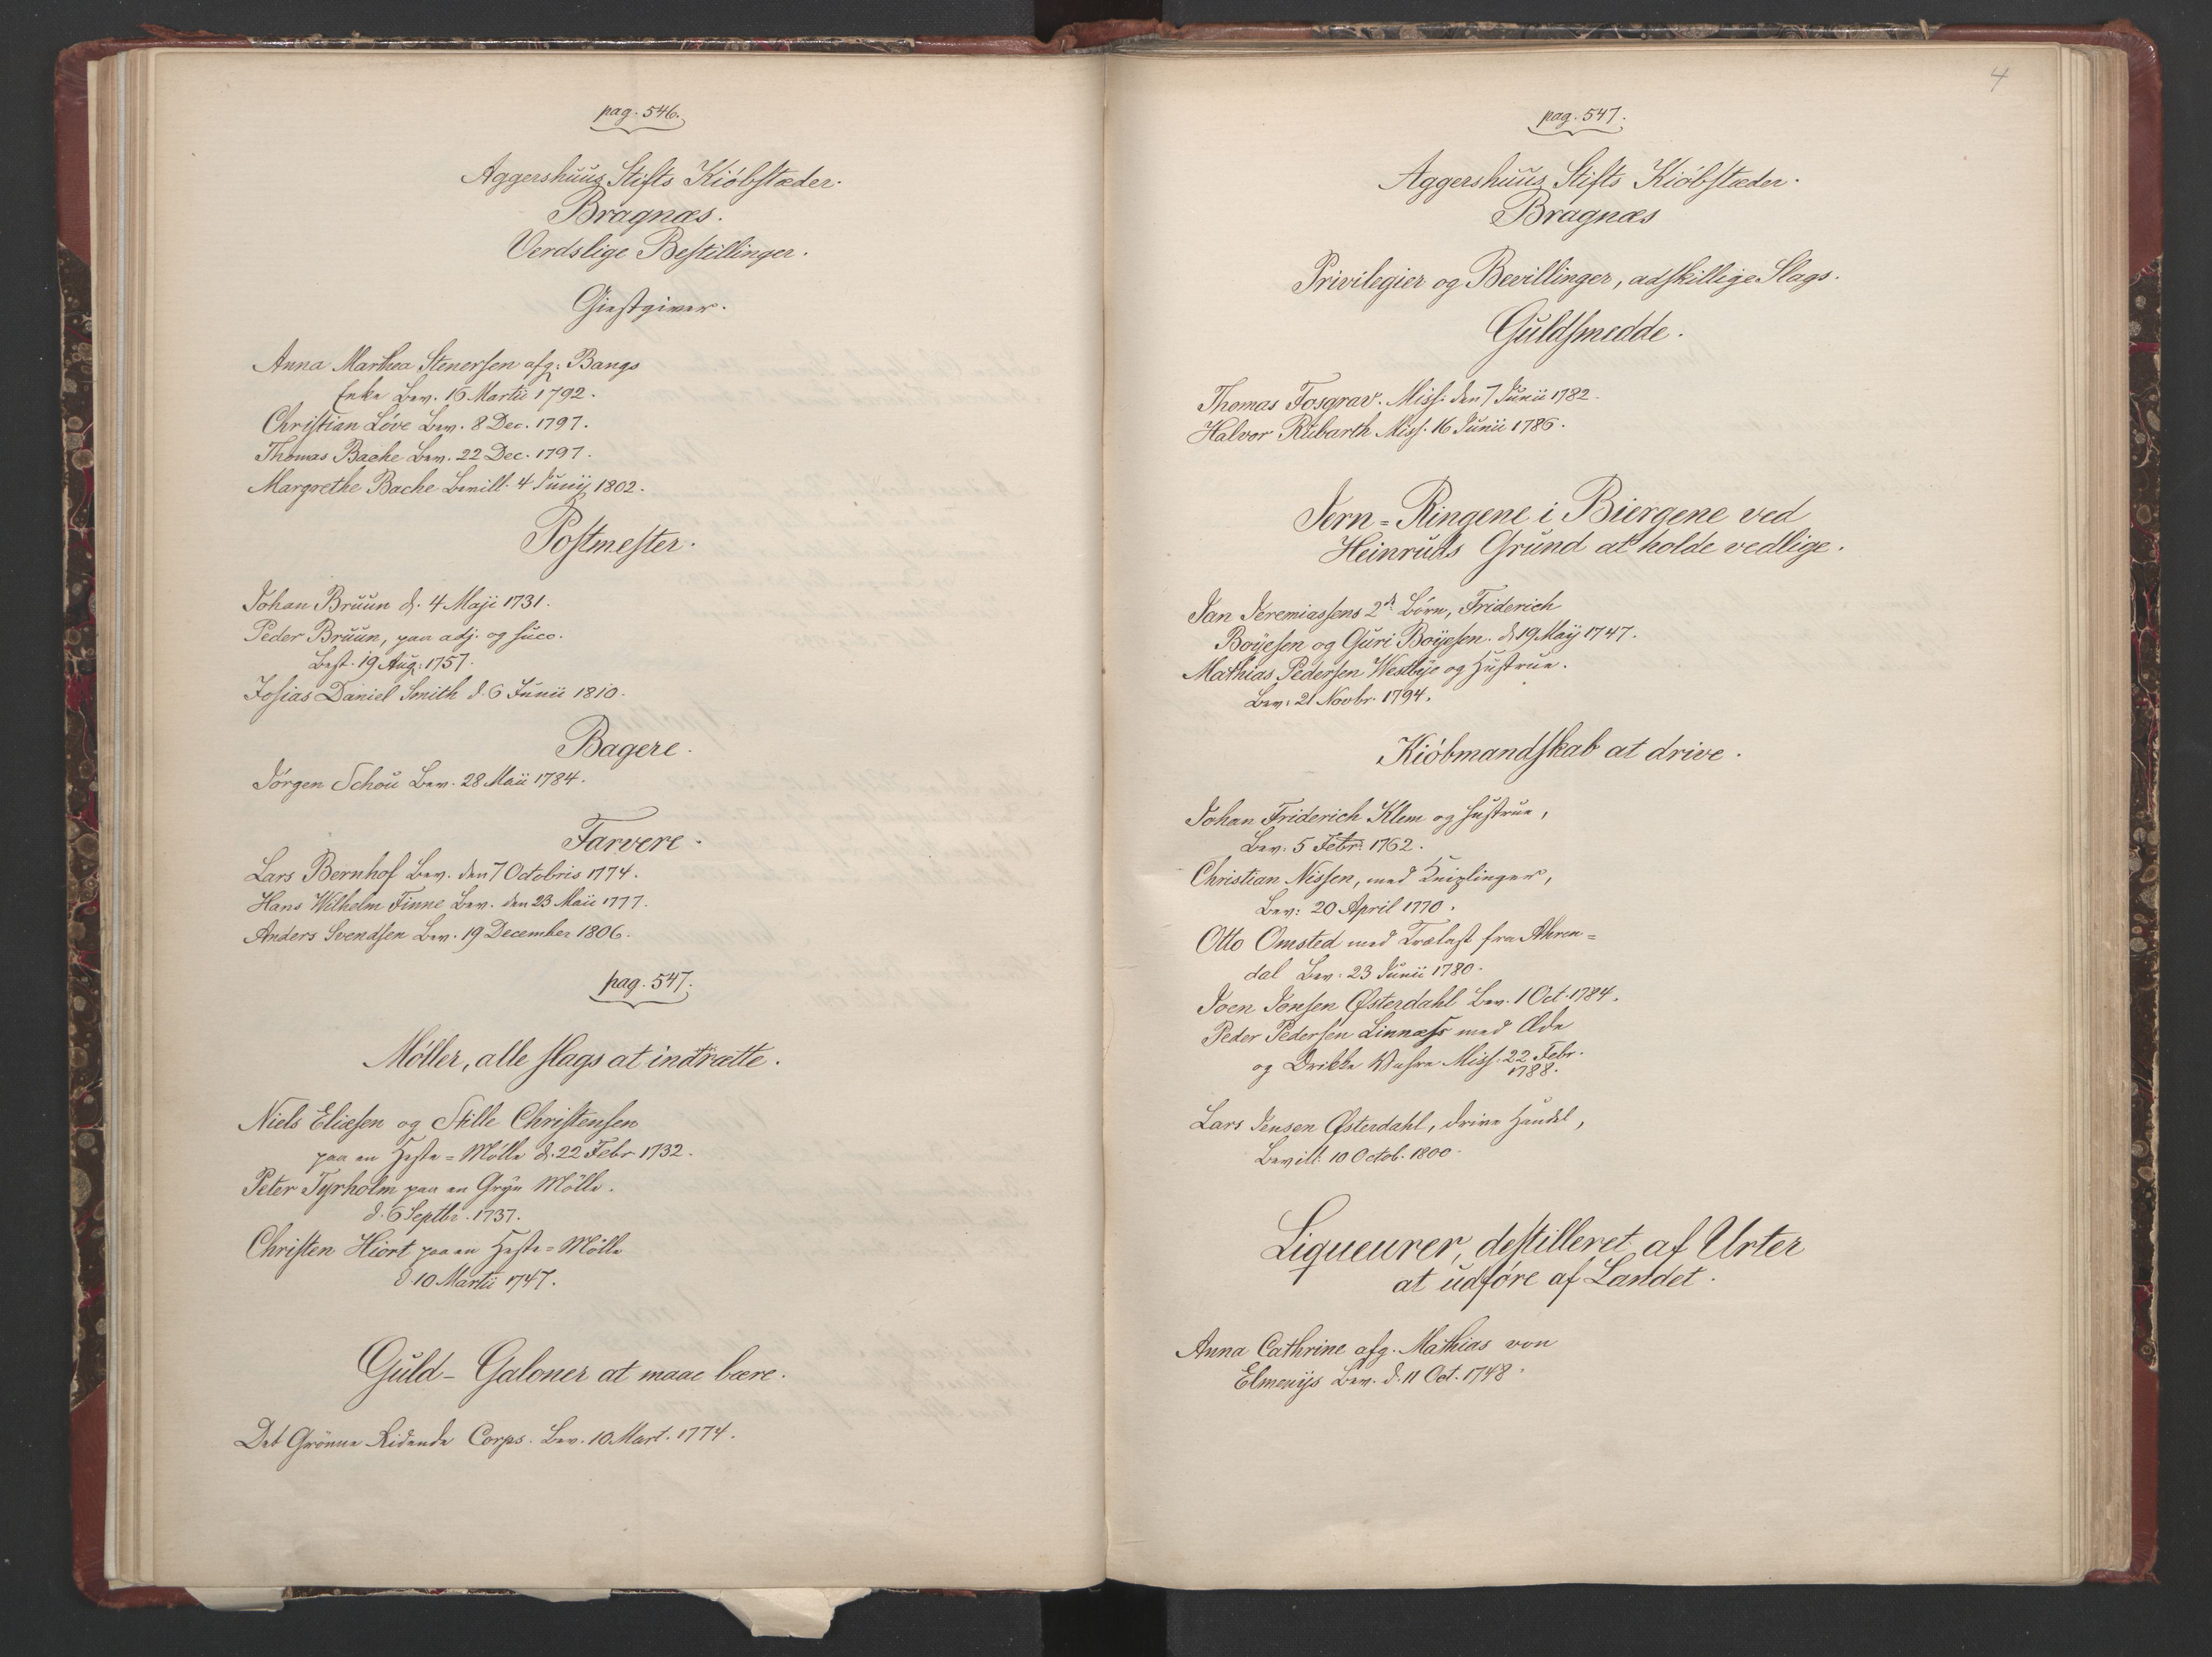 pag. 546.
Aggershuus Stifts Kiöbstæder.
Bragnæs.
Verdslige Bestillinger.
Giestgiver.
Anna Marthea Stenersen afg: Bangs
Enke Bev. 16 Martii 1792.
Christian Löve Bev. 8 Dec. 1797.
Thomas Bache Bev. 22 Dec. 1797.
Margrethe Bache Bevill. 4 Junij 1802.
Postmester.
Johan Bruun d. 4 Maji 1731.
Peder Bruun, paa adj. og succ.
Best. 19 Aug: 1757.
Josias Daniel Smith d. 6 Junii 1810.
Bagere.
Jörgen Schou Bev. 28 Maii 1784.
Farvere.
Lars Bernhof Bev. den 7 Octobris 1774.
Hans Wilhelm Finne Bev. den 23 Maii 1777.
Anders Svendsen Bev. 19 December 1806.
pag. 547.
Möller, alle slags at indrætte.
Niels Eliæsen og Stille Christensen
paa en Heste=Mölle d. 22 Febr 1732.
Peter Tyrholm paa en Gryn Mölle.
d. 6 Septbr. 1737.
Christen Hiort paa en Heste=Mölle
d. 10 Martii 1747.
Guld-Galoner at maae bære.
Det Grönne Ridende Corps. Bev. 10 Mart. 1774.
4
pag. 547.
Aggershuus Stifts Kiöbstæder.
Bragnæs
Privilegier og Bevillinger, adskillige Slags.
Guldsmedde.
Thomas Fosgrav. Miss: den 7 Junii 1782.
Halvor Rubarth Miss. 16 Junii 1786.
Jern=Ringene i Biergene ved
Heinruds Grund at holde vedlige.
Jan Jeremiassens 2de Börn, Friderich
Boyesen og Guri Boyesen. d. 19 Maÿ 1747.
Mathias Pedersen Westbye og Hustrue.
Bev: 21 Novbr. 1794.
Kiöbmandskab at drive.
Johan Friderich Klem og Hustrue,
Bev. 5 Febr: 1762.
Christian Nissen, med Kniplinger,
Bev: 20 April 1770.
Otto Omsted med Trælast fra Ahren=
dal Bev: 23 Junii 1780.
Joen Jonsen Østerdahl Bev. 1 Oct. 1784.
Peder Pedersen Linnæss med Æde
og Drikke Wahre Miss. 22 Febr.
1788.
Lars Jensen Østerdahl, drive Handel,
Bevill: 10 Octob. 1800.
Liqueurer, destilleret af Urter
at udföre af Landet.
Anna Cathrine afg. Mathias von
Bev. d. 11 Oct. 1748.